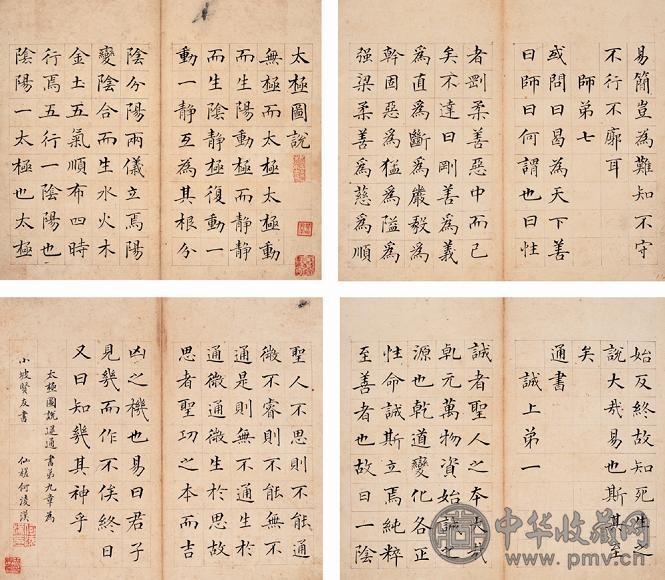 易簡豈為難知不守
不行不廓耳
師第七
或問曰曷為天下善
曰師曰何謂也曰性
者剛柔善惡中而已
矣不達曰剛善為義
為直為斷為嚴毅為
幹固惡為猛為隘為
强梁柔善為慈為順
太極圖說
無極而太極太極動
而生陽動極而靜靜
而生陰靜極復動一
動一靜互為其根分
陰分陽兩儀立焉陽
變陰合而生水火木
金土五氣順布四時
行焉五行一陰陽也
陰陽一太極也太極
始反終故知死生之
說大哉易也斯其至
矣
通書
誠上第一
誠者聖人之本大哉
乾元萬物資始誠之
源也乾道變化各正
性命誠斯立焉純粹
至善者也故曰一陰
聖人不思則不能通
微不睿則不能無不
通是則無不通生於
通微通微生於思故
思者聖功之本而吉
凶之機也易曰君子
見幾而作不俟終日
又曰知幾其神乎
太極圖說 通書第九章為
小坡賢友書 仙槎何凌漢
中华收藏网
www.pmv.cn